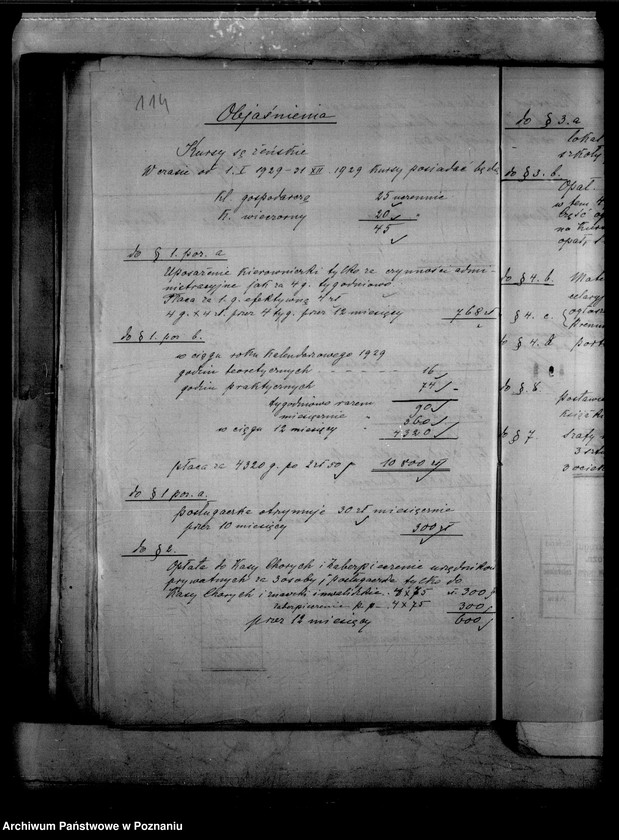 114
Objaśnienia
Kursy są żeńskie
W czasie od 1.I 1929-31 XII. 1929 kursy posiadać będą
kl. gospodarczą 25 uczennic
k. wieczorny 20 "
45
do § 1. poz. a
Uposażenie kierowniczki tylko za czynności admi-
nistracyjne jak za 4 g. tygodniowo
Płaca za 1 g. efektywną 4 zł
4 g. x 4 zł. przez 4 tyg. przez 12 miesięcy 768 zł
do § 1. poz b.
w ciągu roku kalendarzowego 1929
godzin teoretycznych 16
godzin praktycznych 74
tygodniowo razem 90
miesięcznie " 360
w ciągu 12 miesięcy " 4320
płaca za 4320 g. po 2 zł 50 gr 10 800 zł
do § 1 poz. a.
posługaczka otrzymuje 30 zł miesięcznie
przez 10 miesięcy 300 zł
do § 2.
Opłata do Kasy Chorych i zabezpieczenie urzędników
prywatnych za 3 osoby i posługaczkę tylko do
Kasy Chorych i znaczki inwalidzkie. 4 x 75 zł 300
zabezpieczenie p. p. 4 x 75 300
przez 12 miesięcy 600
do § 3. a
lokal
szkoły
do § 3. b.
Opał
w tem
część
na
opał
do § 4. b. Mate
§ 4. c.
§ 4. d port
do § 8.
książki
do § 7. Szafy
3
Archiwum Państwowe w Poznaniu